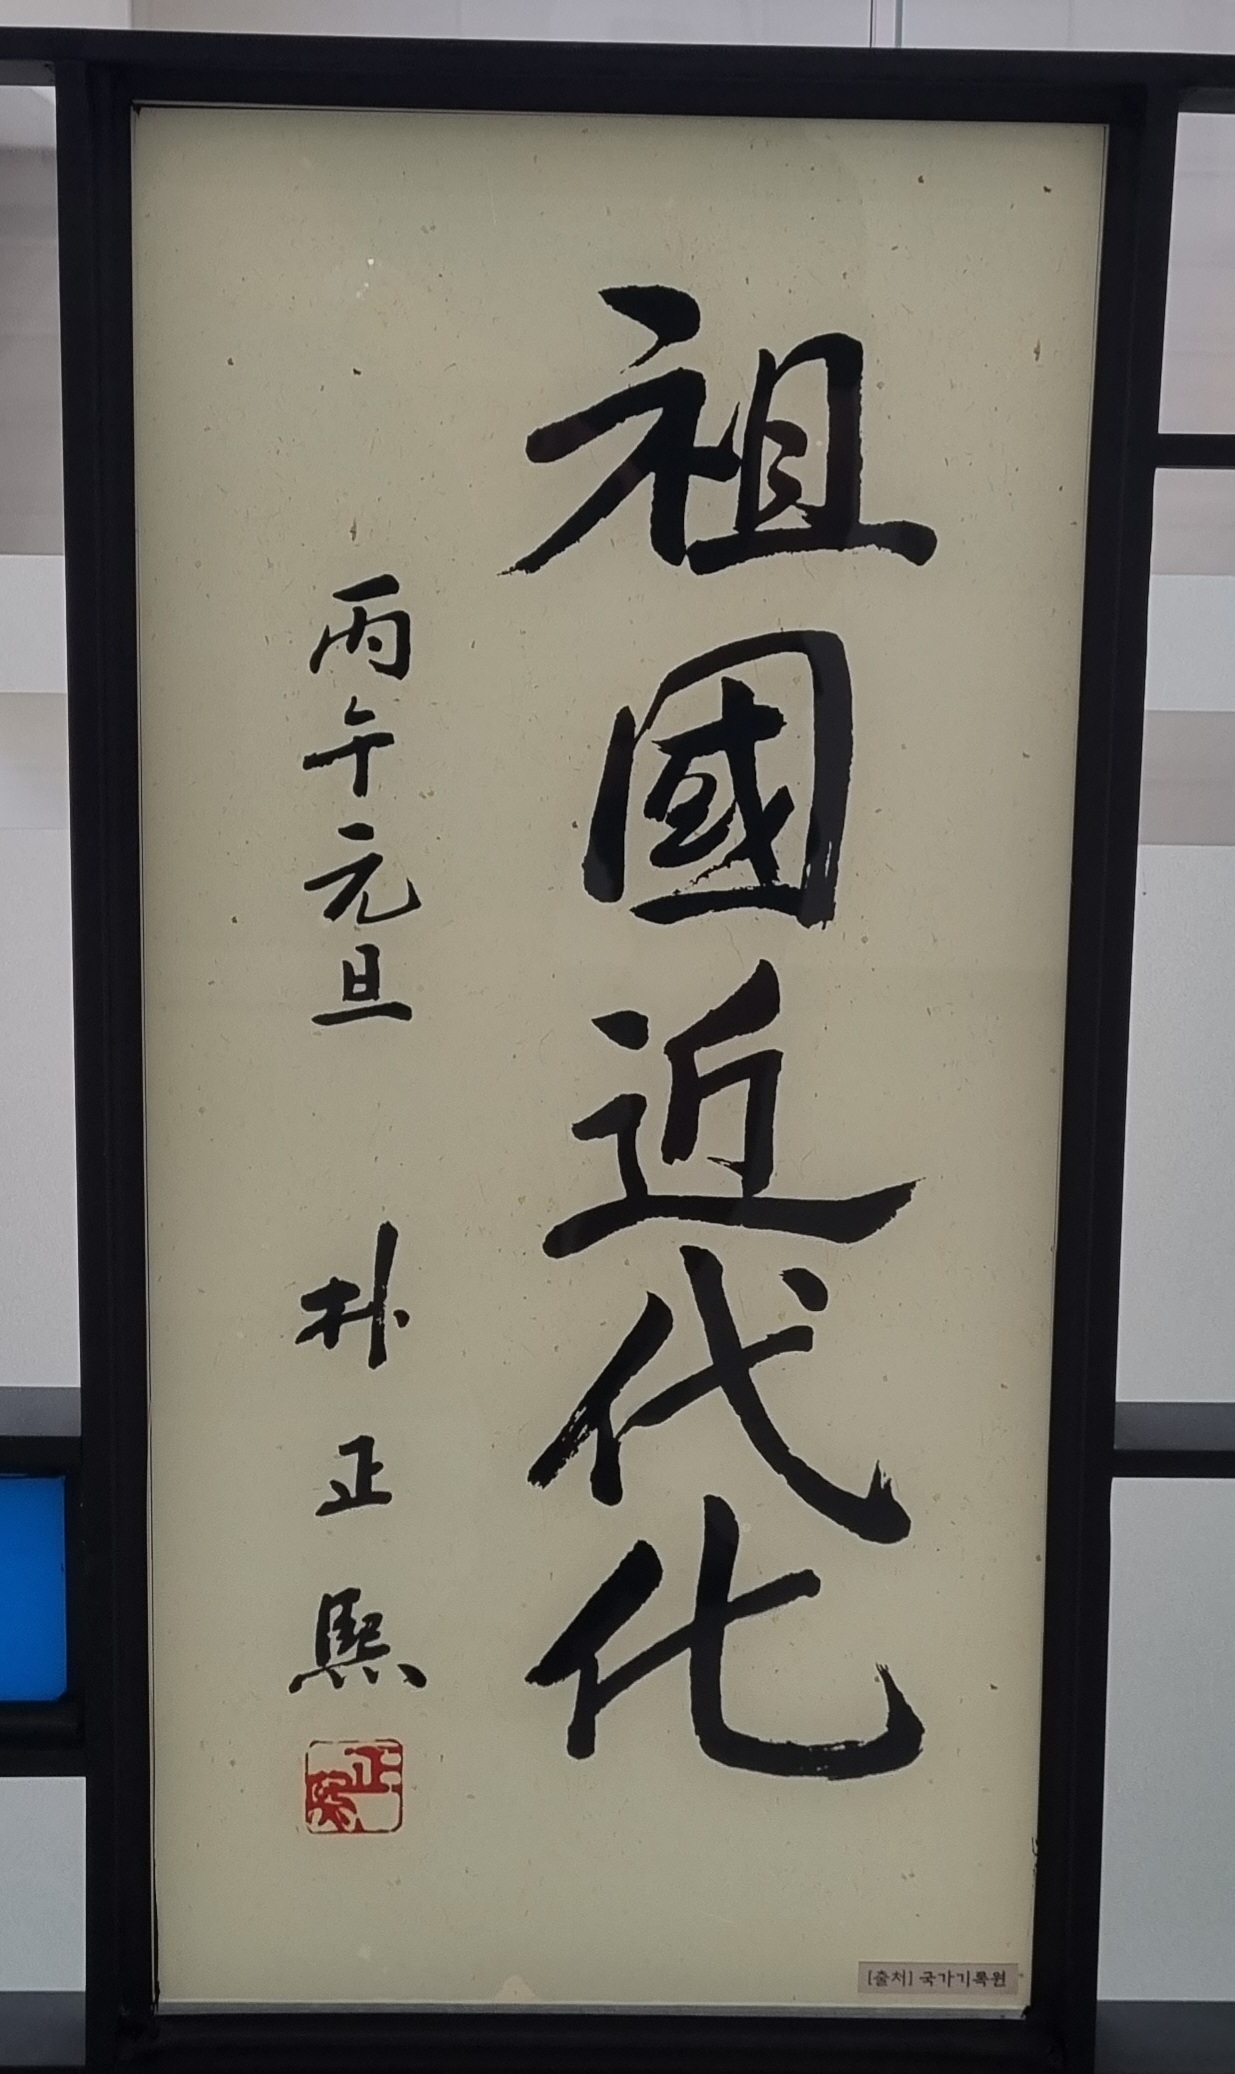 祖國近代化
丙午元旦
朴正熙
正熙
[출처] 국가기록원